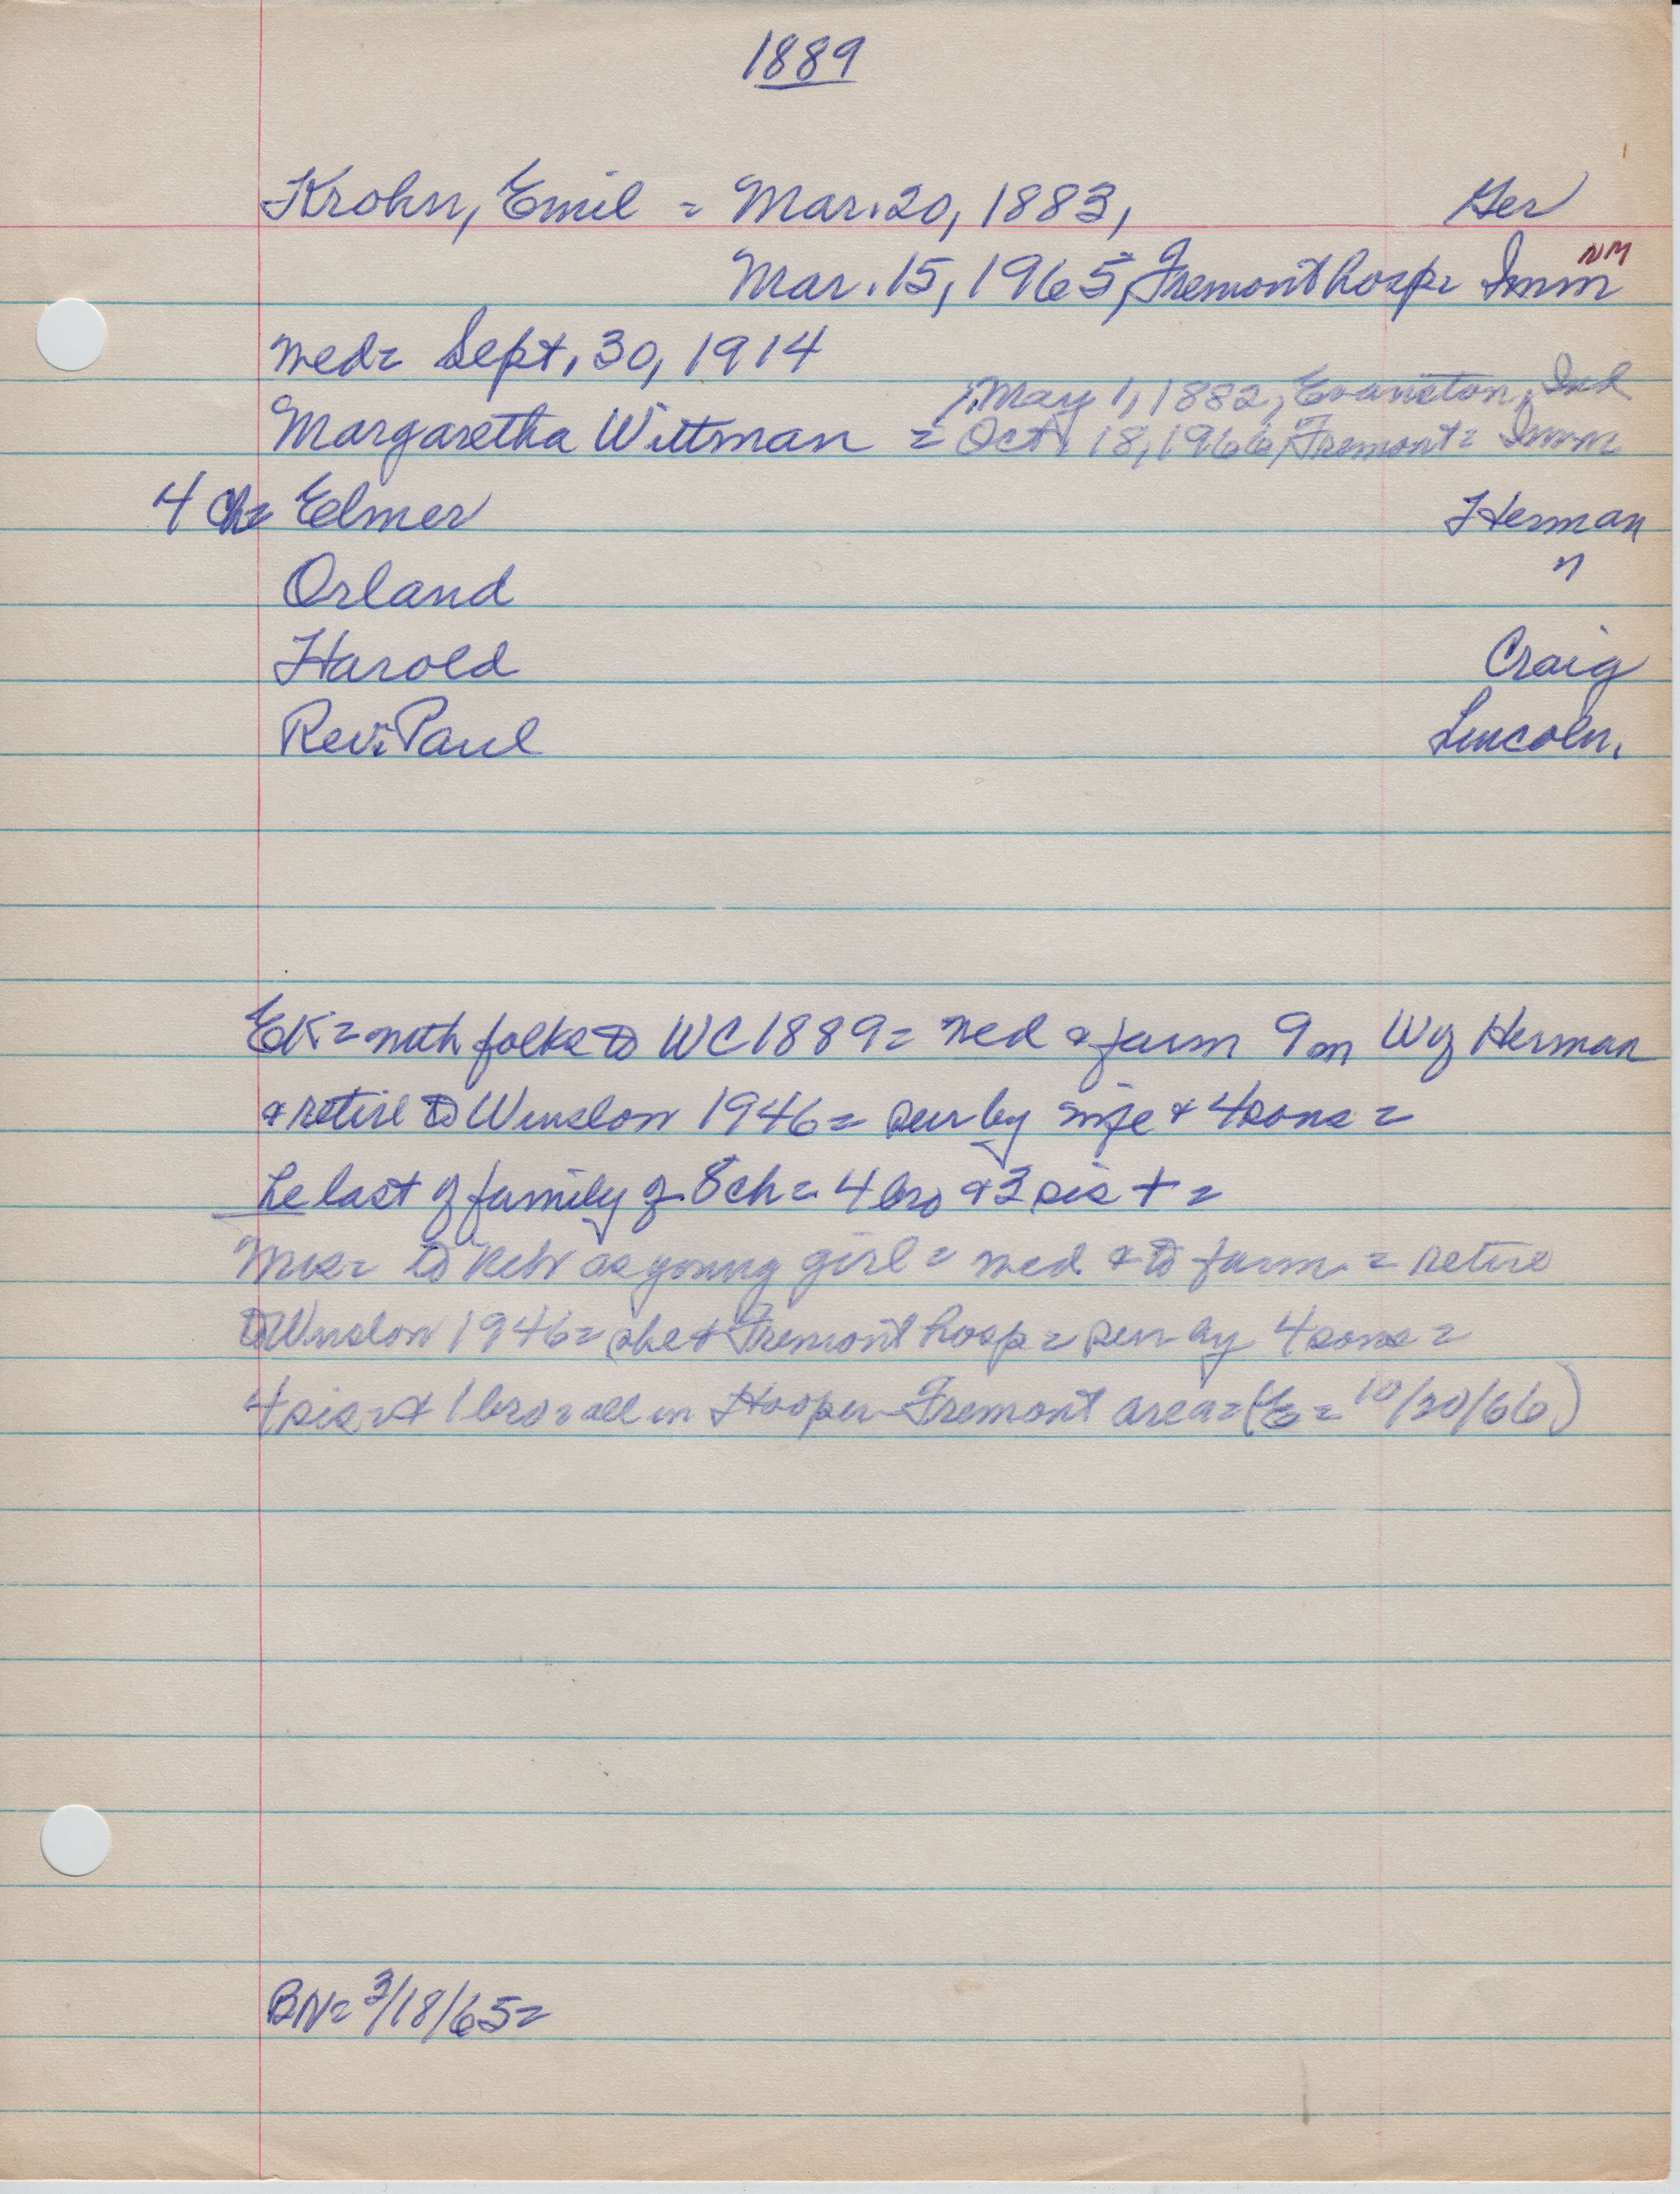 1889
Krohn, Emil = Mar. 20, 1883, Ger
Mar. 15, 1965, Fremont hosp = Imm NM
wed = Sept. 30, 1914
May 1, 1882, Evanston, Ind
Margaretha Wittman = Oct. 18, 1966, Fremont = Imm
4 ch = Elmer Herman
Orland "
Harold Craig
Rev. Paul Lincoln.
EK = with folks to WC 1889 = wed & farm 9 m W of Herman
& retire to Winslow 1946 = sur by wife & 4 sons =
he last of family of 8 ch = 4 bro & 3 sis + =
Mrs = to Neb as young girl = wed & to farm = retire
to Winslow 1946 = she + Fremont hosp = sur by 4 sons =
4 sis = & 1 bro = all in Hooper-Fremont area = (E = 10/20/66)
BN = 3/18/65 =